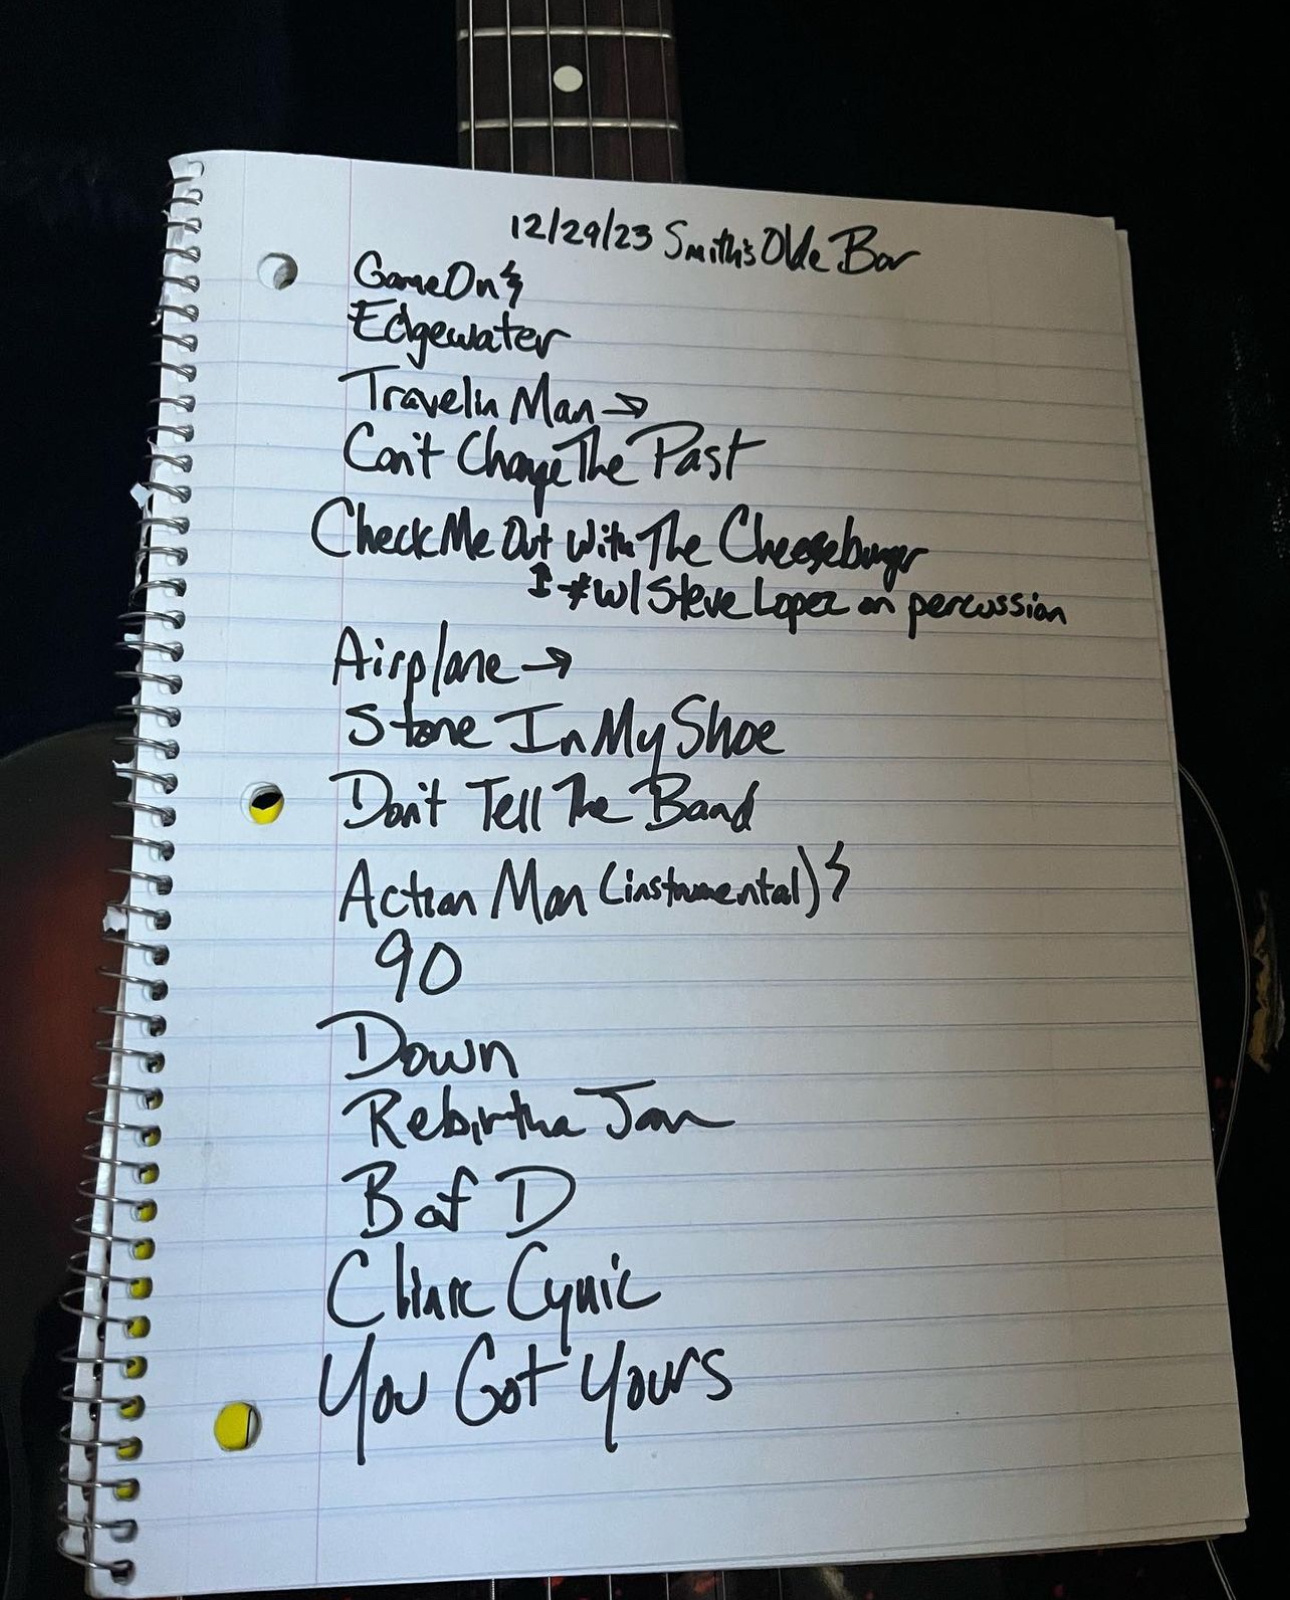 12/29/23 Smith's Olde Bar
Game On ϟ
Edgewater
Travelin Man →
Can't Change The Past
Check Me Out With The Cheeseburger
↑ * w/ Steve Lopez on percussion
Airplane →
Stone In My Shoe
Don't Tell The Band
Action Man (instrumental) ϟ
90
Down
Rebirtha Jam
B of D
Clinic Cynic
You Got Yours